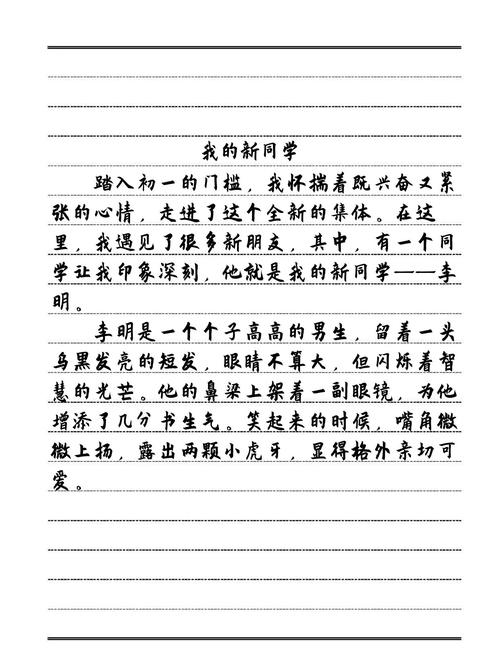 我的新同学
踏入初一的门槛，我怀揣着既兴奋又紧
张的心情，走进了这个全新的集体。在这
里，我遇见了很多新朋友，其中，有一个同
学让我印象深刻，他就是我的新同学——李
明。
李明是一个个子高高的男生，留着一头
乌黑发亮的短发，眼睛不算大，但闪烁着智
慧的光芒。他的鼻梁上架着一副眼镜，为他
增添了几分书生气。笑起来的时候，嘴角微
微上扬，露出两颗小虎牙，显得格外亲切可
爱。